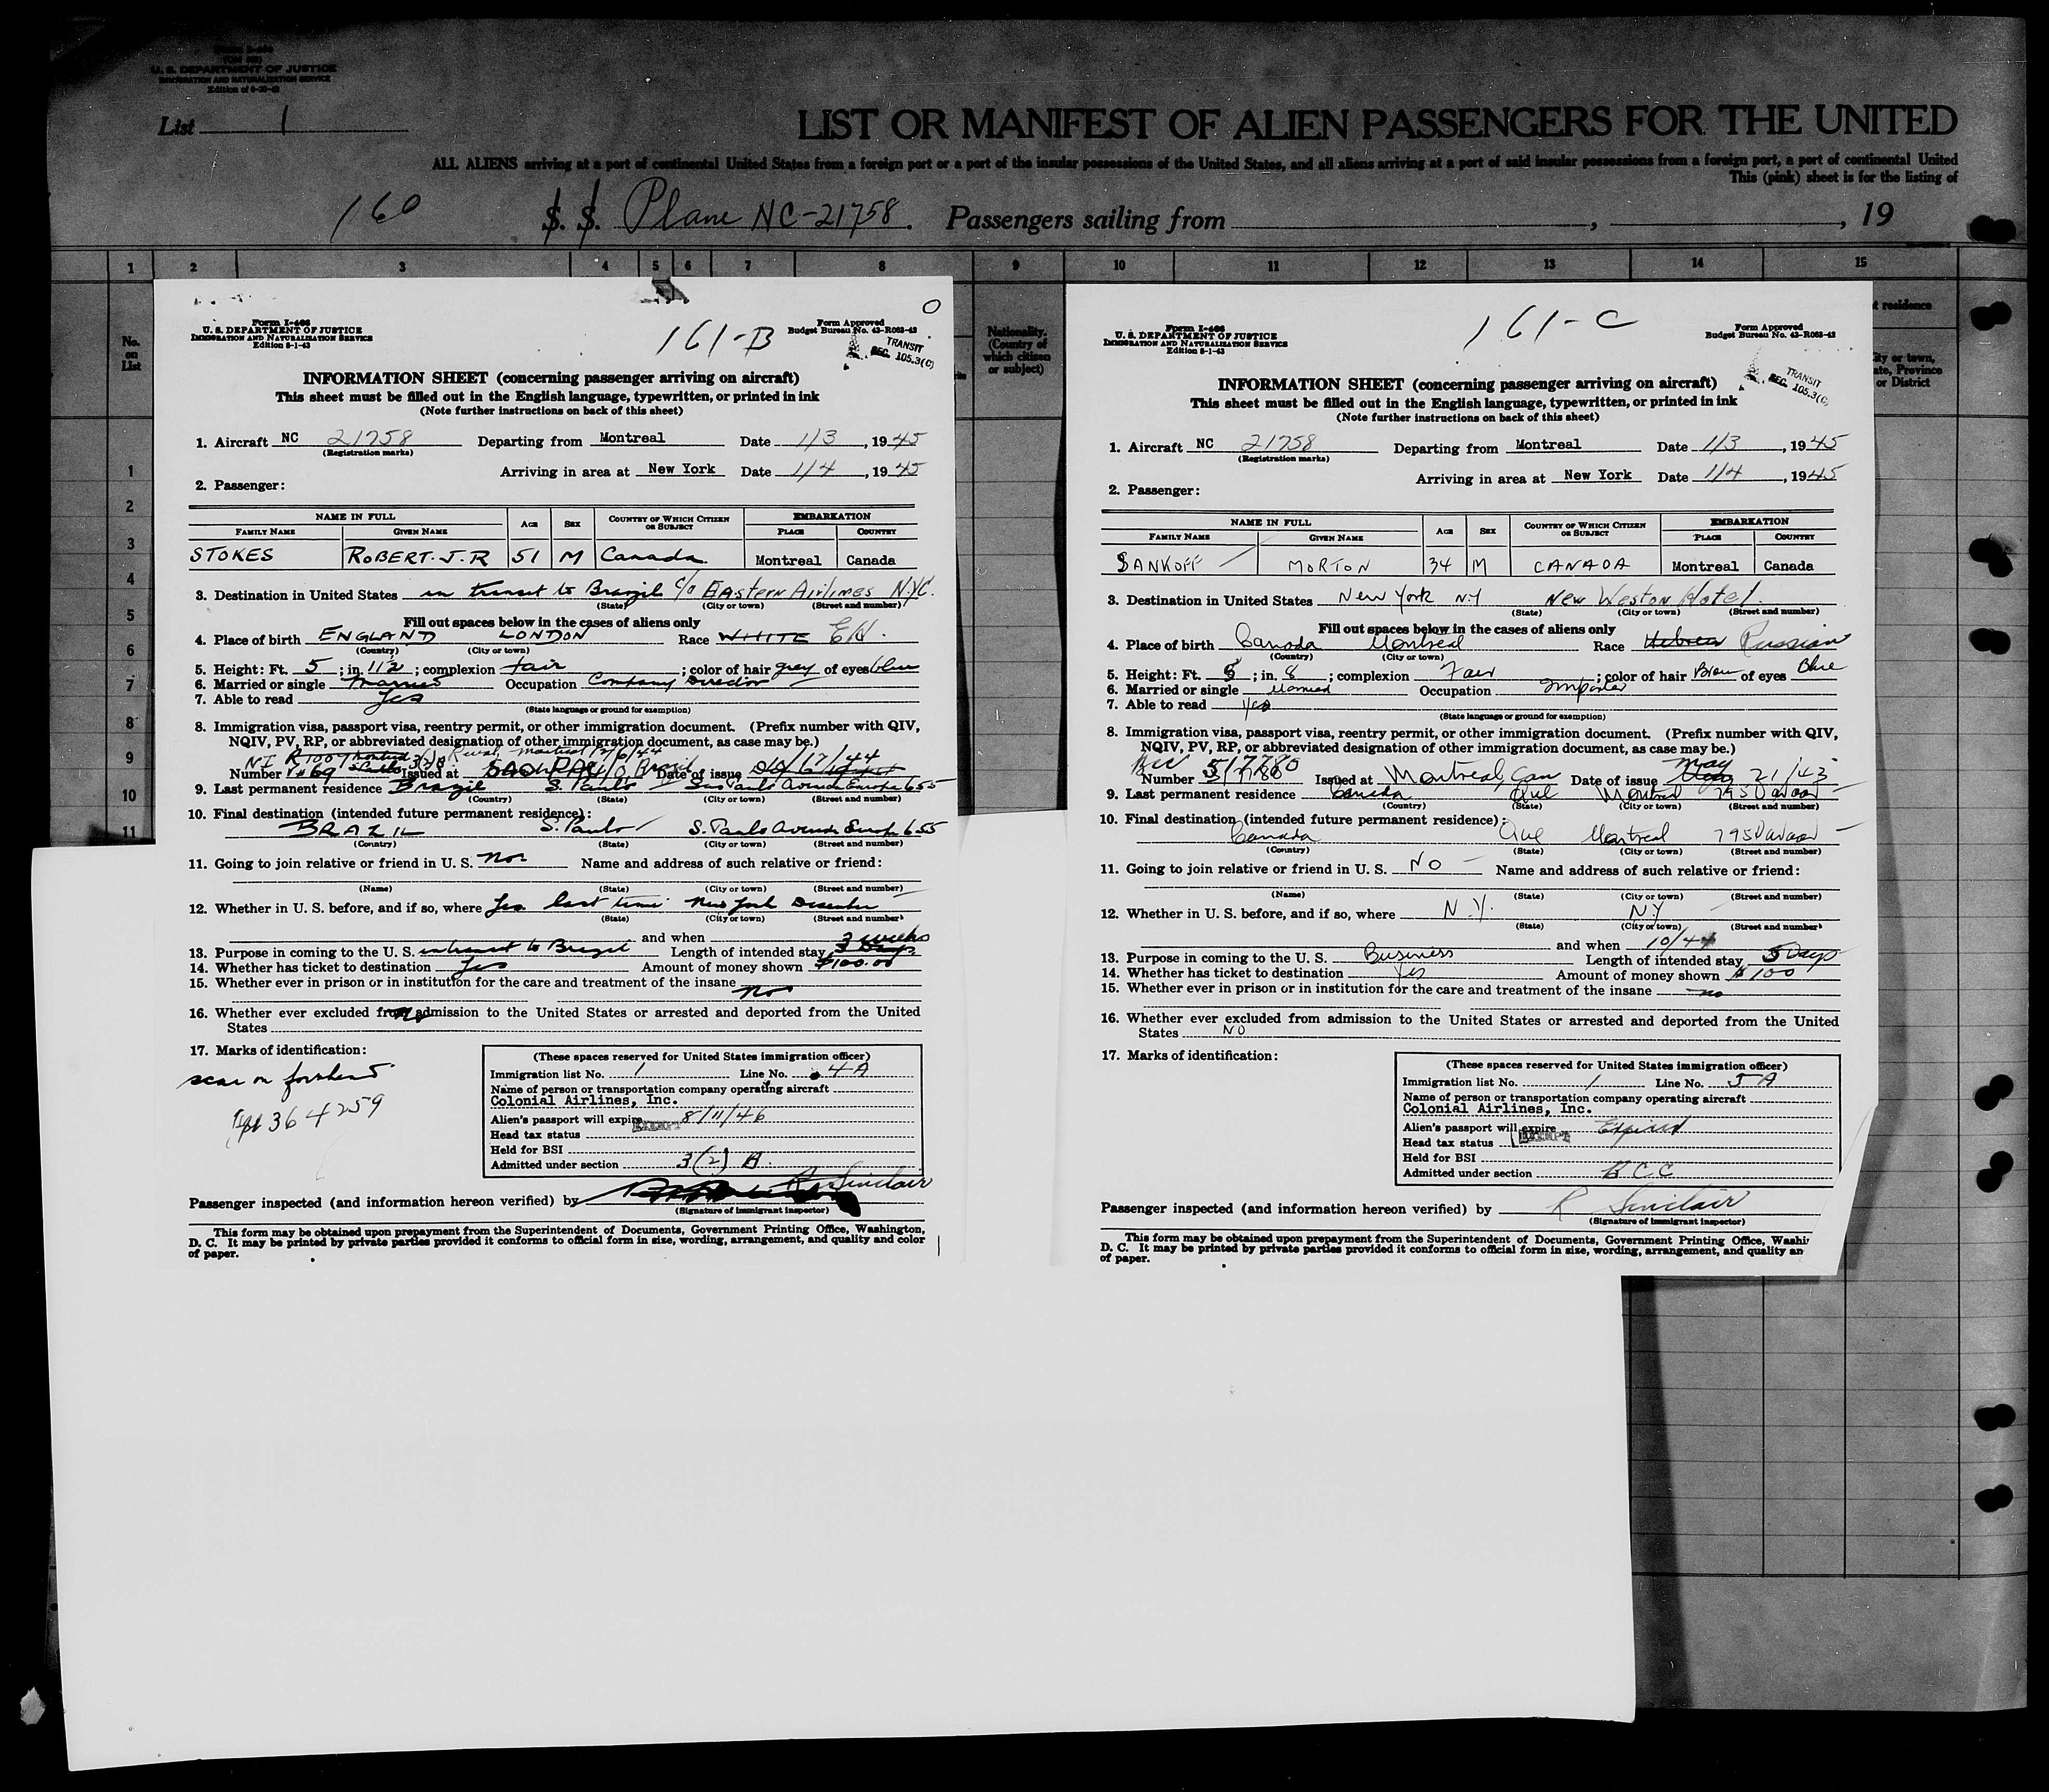 U. S. DEPARTMENT OF JUSTICE
IMMIGRATION AND NATURALIZATION SERVICE
List 1
LIST OR MANIFEST OF ALIEN PASSENGERS FOR THE UNITED
ALL ALIENS arriving at a port of continental United States from a foreign port or a port of the insular possessions of the United States, and all aliens arriving at a port of said insular possessions from a foreign port, a port of continental United
This (pink) sheet is for the listing of
160 S. S. Plane NC-21758. Passengers sailing from , , 19
1 2 3 4 5 6 7 8 9 10 11 12 13 14 15
No. on List
Nationality. (Country of which citizen or subject)
t residence
ity or town, ate, Province or District
1
2
3
4
5
6
7
8
9
10
11
Form I-466
U. S. DEPARTMENT OF JUSTICE
IMMIGRATION AND NATURALIZATION SERVICE
Edition 8-1-43
161-B
Form Approved
Budget Bureau No. 43-R063-42
TRANSIT
SEC. 105.3(C)
INFORMATION SHEET (concerning passenger arriving on aircraft)
This sheet must be filled out in the English language, typewritten, or printed in ink
(Note further instructions on back of this sheet)
1. Aircraft NC 21758 Departing from Montreal Date 1/3, 1945
(Registration marks)
Arriving in area at New York Date 1/4, 1945
2. Passenger:
NAME IN FULL AGE SEX COUNTRY OF WHICH CITIZEN OR SUBJECT EMBARKATION
FAMILY NAME GIVEN NAME PLACE COUNTRY
STOKES ROBERT. J. R 51 M Canada Montreal Canada
3. Destination in United States in transit to Brazil c/o EAstern Airlines N.Y.C.
(State) (City or town) (Street and number)
Fill out spaces below in the cases of aliens only
4. Place of birth ENGLAND LONDON Race WHITE
(Country) (City or town)
5. Height: Ft. 5; in. 11½; complexion fair; color of hair grey of eyes blue
6. Married or single Married Occupation Company Director
7. Able to read Yes
(State language or ground for exemption)
8. Immigration visa, passport visa, reentry permit, or other immigration document. (Prefix number with QIV,
NQIV, PV, RP, or abbreviated designation of other immigration document, as case may be.)
Number Issued at Brazil Date of issue
9. Last permanent residence Brazil S. Paulo Sao Paulo Avenida Europa 655
(Country) (State) (City or town) (Street and number)
10. Final destination (intended future permanent residence):
BRAZIL S. Paulo S. Paulo Avenida Europa 655
(Country) (State) (City or town) (Street and number)
11. Going to join relative or friend in U. S. Name and address of such relative or friend:
(Name) (State) (City or town) (Street and number)
12. Whether in U. S. before, and if so, where Yes last time New York December
(State) (City or town) (Street and number)
and when
13. Purpose in coming to the U. S. intransit to Brazil Length of intended stay 3 weeks
14. Whether has ticket to destination Yes Amount of money shown $100.00
15. Whether ever in prison or in institution for the care and treatment of the insane No
16. Whether ever excluded from admission to the United States or arrested and deported from the United
States
17. Marks of identification:
scar on forehead
364259
(These spaces reserved for United States immigration officer)
Immigration list No. 1 Line No. 4A
Name of person or transportation company operating aircraft
Colonial Airlines, Inc.
Alien's passport will expire 8/11/46
EXEMPT
Head tax status
Held for BSI
Admitted under section 3(2) B.
Passenger inspected (and information hereon verified) by R Sinclair
(Signature of immigrant inspector)
This form may be obtained upon prepayment from the Superintendent of Documents, Government Printing Office, Washington,
D. C. It may be printed by private parties provided it conforms to official form in size, wording, arrangement, and quality and color
of paper.
Form I-466
U. S. DEPARTMENT OF JUSTICE
IMMIGRATION AND NATURALIZATION SERVICE
Edition 8-1-43
161-C
Form Approved
Budget Bureau No. 43-R063-42
TRANSIT
SEC. 105.3(C)
INFORMATION SHEET (concerning passenger arriving on aircraft)
This sheet must be filled out in the English language, typewritten, or printed in ink
(Note further instructions on back of this sheet)
1. Aircraft NC 21758 Departing from Montreal Date 1/3, 1945
(Registration marks)
Arriving in area at New York Date 1/4, 1945
2. Passenger:
NAME IN FULL AGE SEX COUNTRY OF WHICH CITIZEN OR SUBJECT EMBARKATION
FAMILY NAME GIVEN NAME PLACE COUNTRY
SANKOFF MORTON 34 M CANADA Montreal Canada
3. Destination in United States New York NY New Weston Hotel
(State) (City or town) (Street and number)
Fill out spaces below in the cases of aliens only
4. Place of birth Canada Montreal Race Hebrew Russian
(Country) (City or town)
5. Height: Ft. 5; in. 8; complexion Fair; color of hair Brow of eyes Blue
6. Married or single Married Occupation Importer
7. Able to read yes
(State language or ground for exemption)
8. Immigration visa, passport visa, reentry permit, or other immigration document. (Prefix number with QIV,
NQIV, PV, RP, or abbreviated designation of other immigration document, as case may be.)
Number 517780 Issued at Montreal, Can Date of issue May 21/43
9. Last permanent residence Canada Que Montreal 795
(Country) (State) (City or town) (Street and number)
10. Final destination (intended future permanent residence):
Canada Que Montreal 795
(Country) (State) (City or town) (Street and number)
11. Going to join relative or friend in U. S. NO Name and address of such relative or friend:
(Name) (State) (City or town) (Street and number)
12. Whether in U. S. before, and if so, where N.Y. N.Y
(State) (City or town) (Street and number)
and when 10/44
13. Purpose in coming to the U. S. Business Length of intended stay 5 Days
14. Whether has ticket to destination Yes Amount of money shown $100
15. Whether ever in prison or in institution for the care and treatment of the insane no
16. Whether ever excluded from admission to the United States or arrested and deported from the United
States NO
17. Marks of identification:
(These spaces reserved for United States immigration officer)
Immigration list No. 1 Line No. 5A
Name of person or transportation company operating aircraft
Colonial Airlines, Inc.
Alien's passport will expire Expired
Head tax status EXEMPT
Held for BSI
Admitted under section BCC
Passenger inspected (and information hereon verified) by R Sinclair
(Signature of immigrant inspector)
This form may be obtained upon prepayment from the Superintendent of Documents, Government Printing Office, Washi
D. C. It may be printed by private parties provided it conforms to official form in size, wording, arrangement, and quality an
of paper.